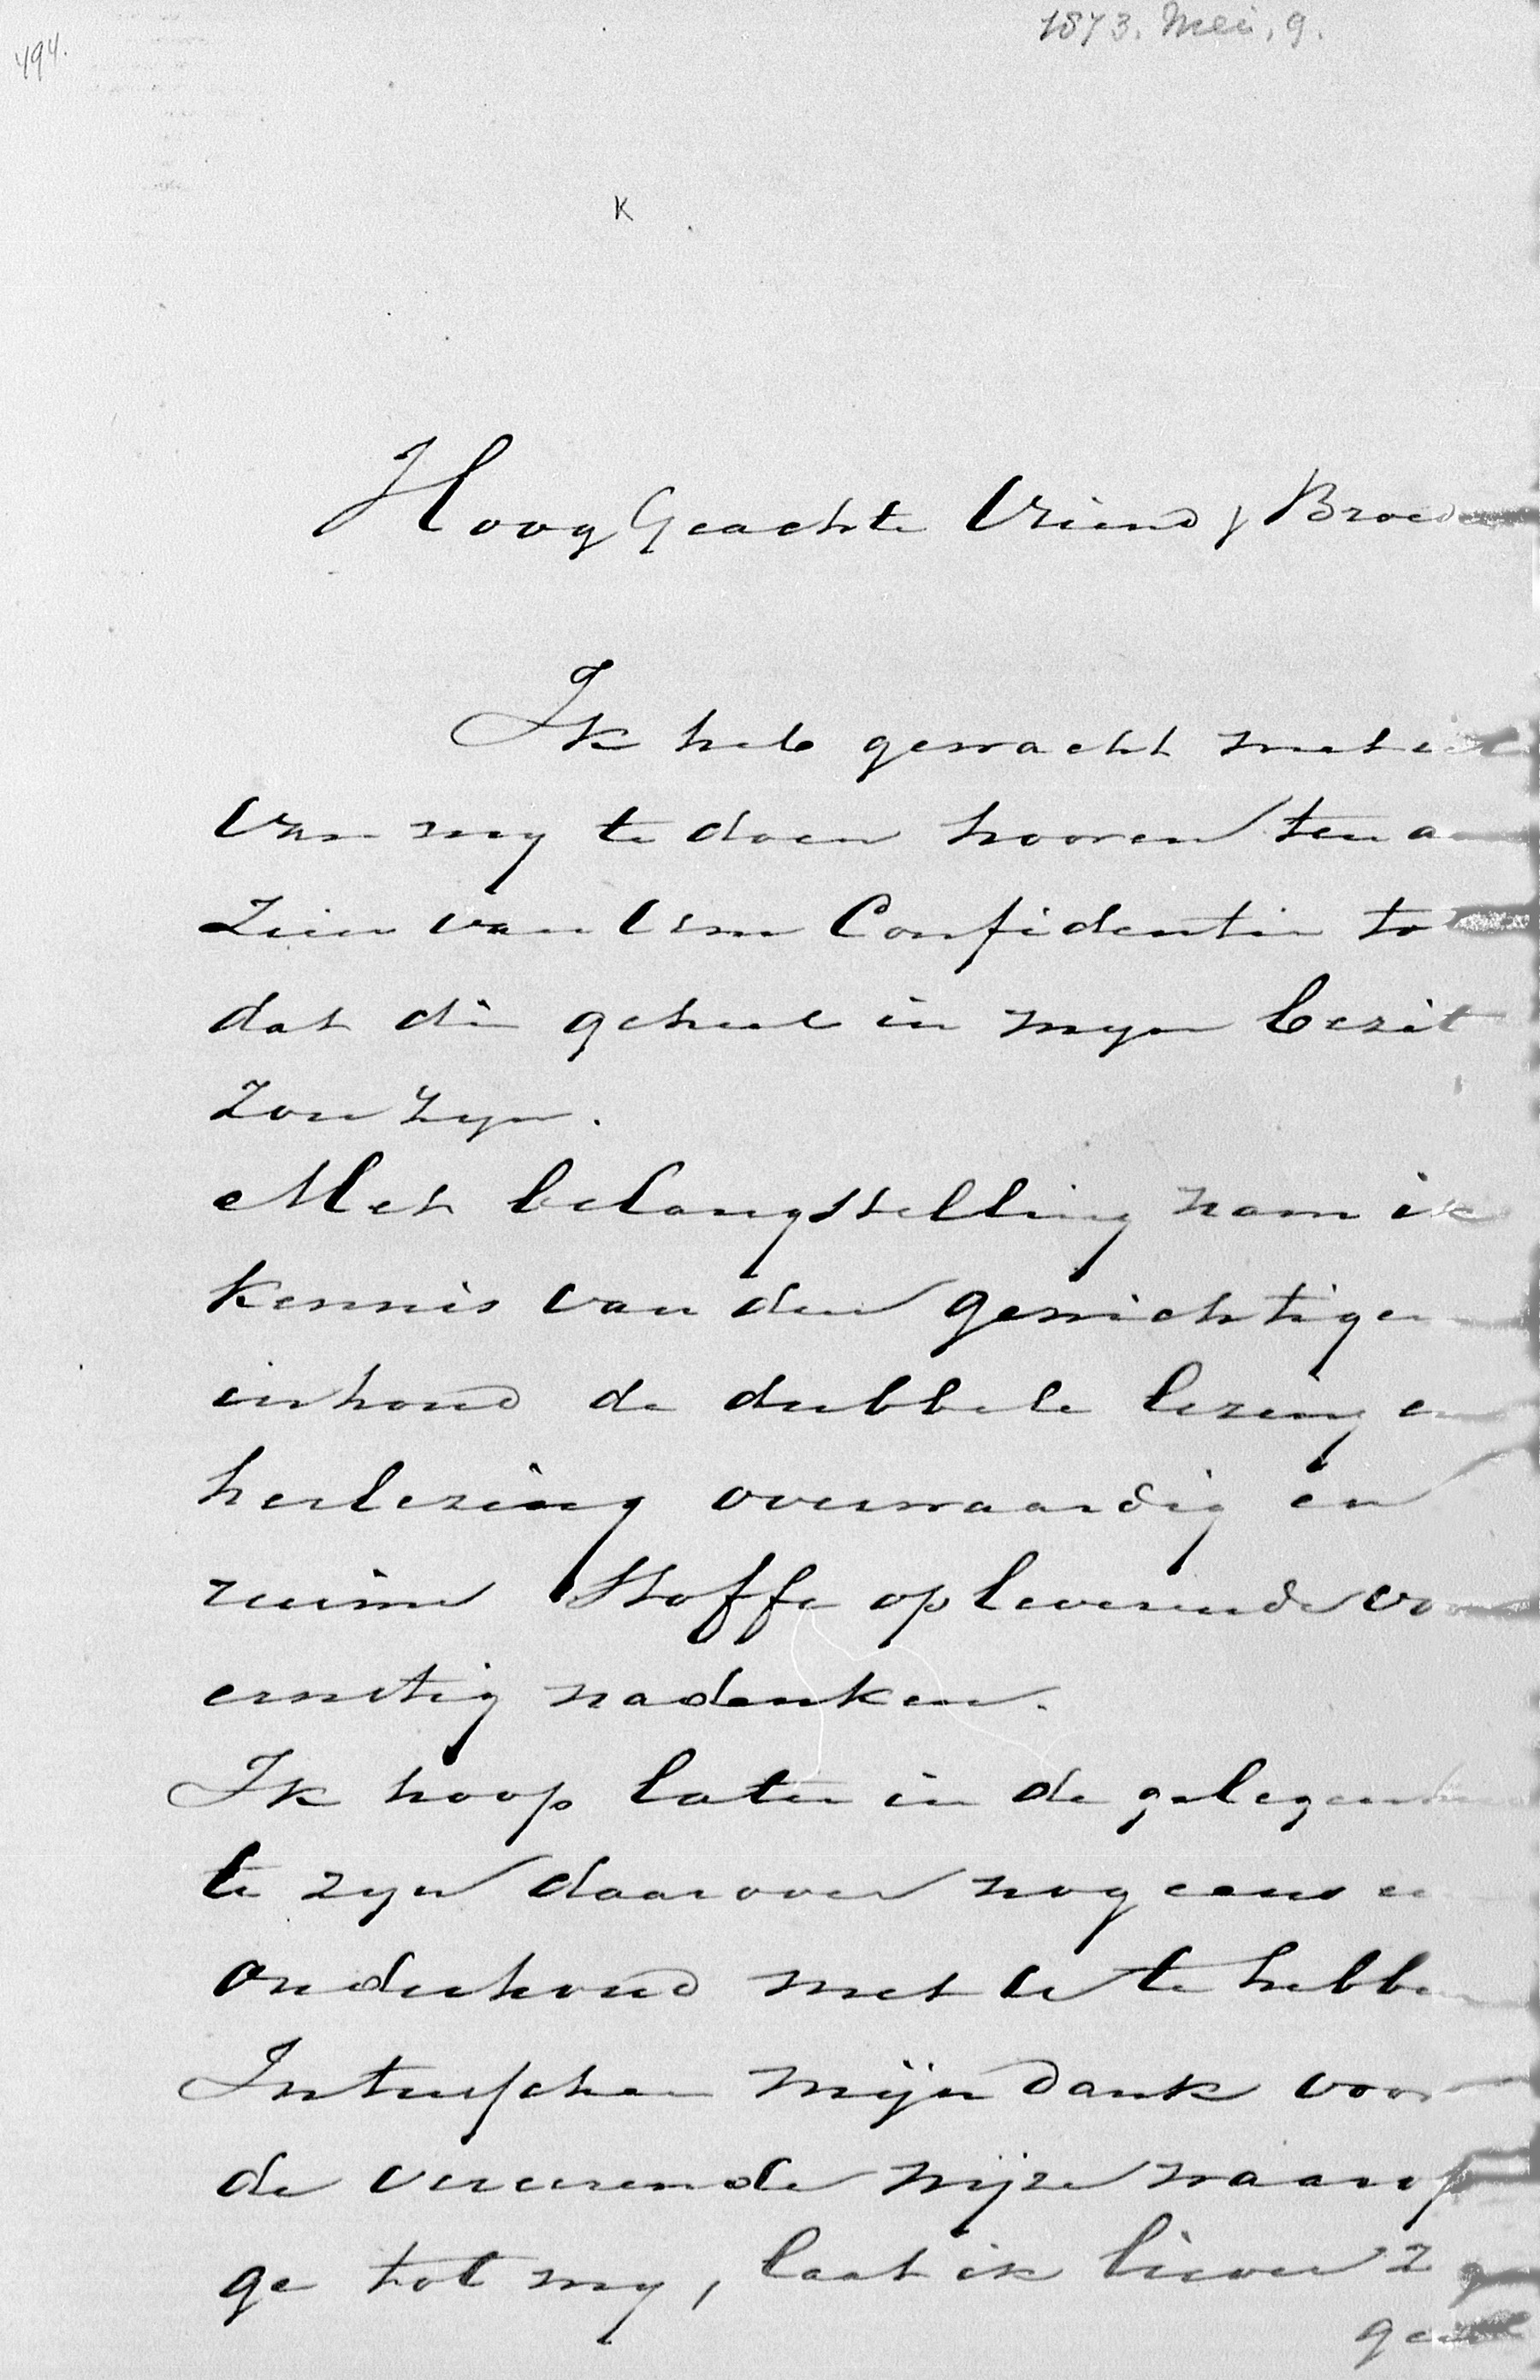 494.
1873. Mei, 9.
K
Hoog Geachte Vriend & Broed
Ik heb gewacht met iets
van my te doen hooren ten aan
zien van Uwe Confidentie tot
dat die geheel in myn bezit
zou zyn.
Met belangstelling nam ik
kennis van den gewichtigen
inhoud de dubbele lezing en
herlezing overwaardig en
ruime stoffe opleverende voor
ernstig nadenken.
Ik hoop later in de gelegenheid
te zyn daarover nog eens een
onderhoud met U te hebben
Intusschen mijn dank voor
de vereerende wijze waarop
ge tot my, laat ik liever